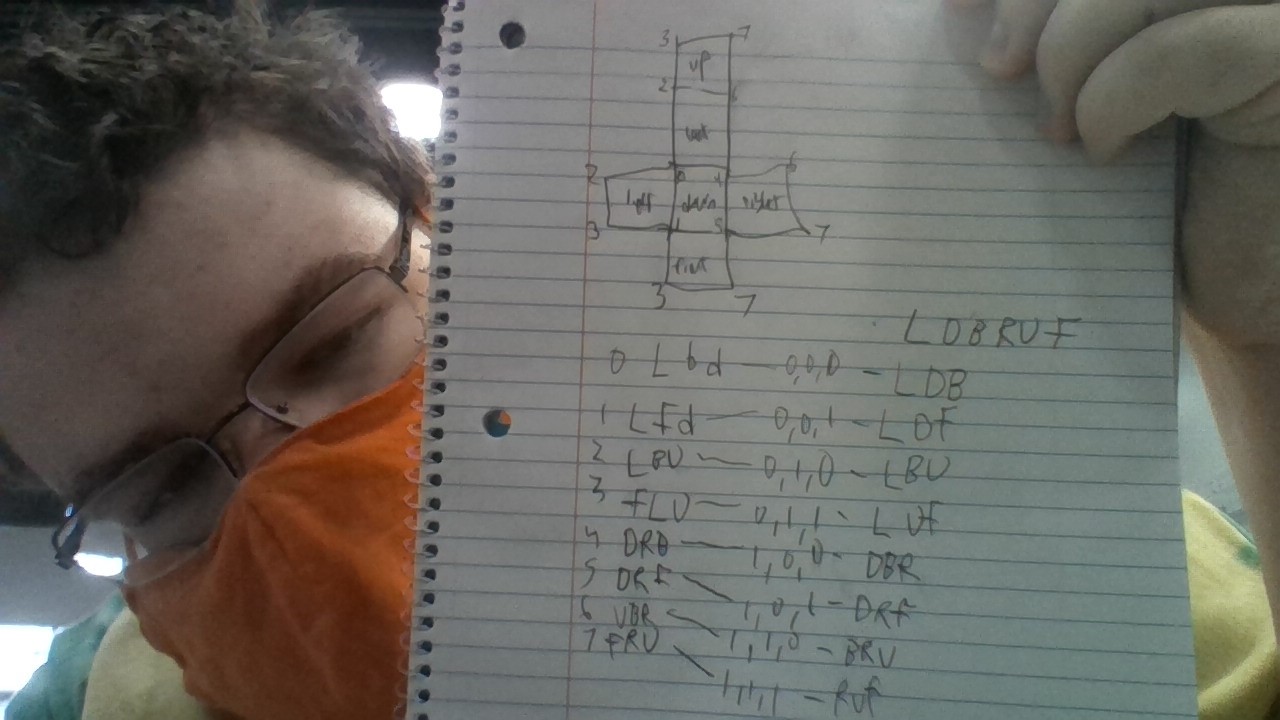 3 7
up
2 6
2 0 4 6
left down right
3 1 5 7
3 7
LDBRUF
0 Lbd — 0,0,0 - LDB
1 LFd — 0,0,1 - LDF
2 LBU — 0,1,0 - LBU
3 FLU — 0,1,1 - LUF
4 DRB — 1,0,0 - DBR
5 DRF — 1,0,1 - DRF
6 UBR — 1,1,0 - BRU
7 FRU — 1,1,1 - RUF